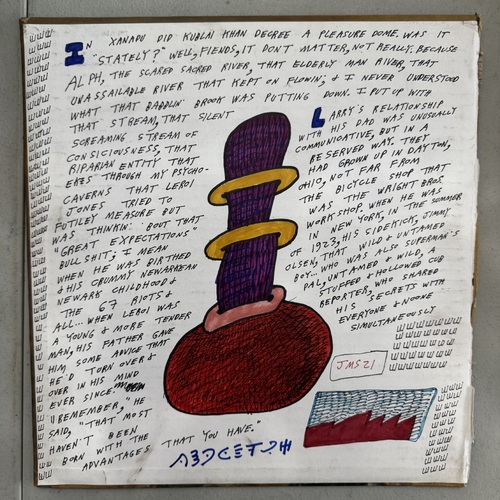 IN XANADU DID KUBLAI KHAN DEGREE A PLEASURE DOME. WAS IT
"STATELY?" WELL, FIENDS, IT DON'T MATTER, NOT REALLY. BECAUSE
ALPH, THE SCARED SACRED RIVER, THAT ELDERLY MAN RIVER, THAT
UNASSAILABLE RIVER THAT KEPT ON FLOWIN', & I NEVER UNDERSTOOD
WHAT THAT BABBLIN' BROOK WAS PUTTING DOWN. I PUT UP WITH
THAT STREAM, THAT SILENT
SCREAMING STREAM OF
CONSCIOUSNESS, THAT
RIPARIAN ENTITY THAT
EKES THROUGH MY PSYCHO-
CAVERNS THAT LEROI
JONES TRIED TO
FUTILEY MEASURE BUT
WAS THINKIN' BOUT THAT
"GREAT EXPECTATIONS"
BULLSHIT, I MEAN
WHEN HE WAS BIRTHED
& HIS CRUMMY NEWARKEAN
NEWARK CHILDHOOD &
THE 67 RIOTS &
ALL... WHEN LEROI WAS
A YOUNG & MORE TENDER
MAN, HIS FATHER GAVE
HIM SOME ADVICE THAT
HE'D TURN OVER &
OVER IN HIS MIND
EVER SINCE.
"REMEMBER," HE
SAID, "THAT MOST
HAVEN'T BEEN
BORN WITH THE
ADVANTAGES THAT YOU HAVE."
LARRY'S RELATIONSHIP
WITH HIS DAD WAS UNUSUALLY
COMMUNICATIVE, BUT IN A
RESERVED WAY. THEY
HAD GROWN UP IN DAYTON,
OHIO, NOT FAR FROM
THE BICYCLE SHOP THAT
WAS THE WRIGHT BROS.
WORKSHOP. WHEN HE WAS
IN NEW YORK, IN THE SUMMER
OF 1923, HIS SIDEKICK, JIMMY
OLSEN, THAT WILD & UNTAMED
BOY... WHO WAS ALSO SUPERMAN'S
PAL, UNTAMED & WILD, A
STUFFED & HOLLOWED CUB
REPORTER, WHO SHARED
HIS SECRETS WITH
EVERYONE & NOONE
SIMULTANEOUSLY
JMS 21